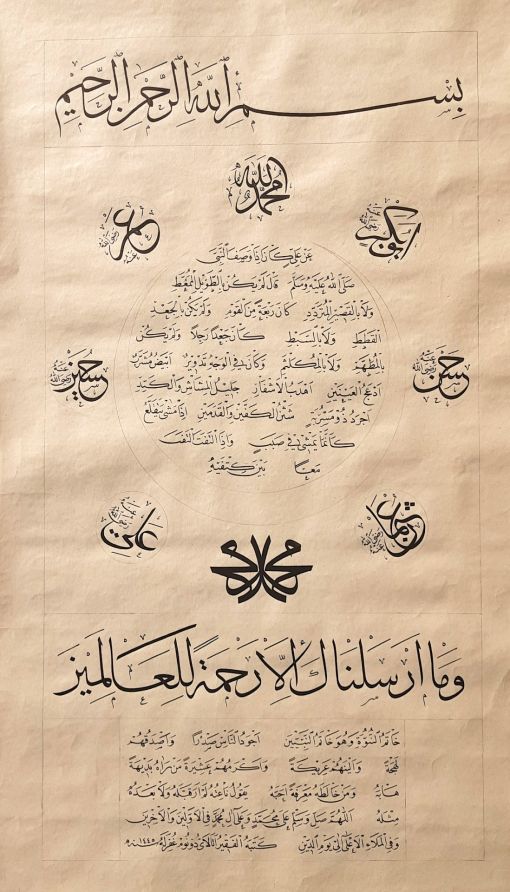 بسم الله الرحمن الرحيم
الله محمد
ابو بكر رضي الله عنه
عمر رضي الله عنه
عن علي كان اذا وصف النبي
صلى الله عليه وسلم قال لم يكن بالطويل الممغط
ولا بالقصير المتردد كان ربعة من القوم ولم يكن بالجعد
القطط ولا بالسبط كان جعدا رجلا ولم يكن
بالمطهم ولا بالمكلثم وكان في الوجه تدوير ابيض مشرب
ادعج العينين اهدب الاشفار جليل المشاش والكتد
اجرد ذو مسربة شثن الكفين والقدمين اذا مشى يتقلع
كانما يمشي في صبب واذا التفت التفت
معا بين كتفيه
حسن رضي الله عنه
حسين رضي الله عنه
عثمان رضي الله عنه
علي رضي الله عنه
محمد
وما ارسلناك الا رحمة للعالمين
خاتم النبوة وهو خاتم النبيين اجود الناس صدرا واصدقهم
لهجة والينهم عريكة واكرمهم عشيرة من رآه بديهة
هابه ومن خالطه معرفة احبه يقول ناعته لم ار قبله ولا بعده
مثله اللهم صل وسلم على محمد وعلى آل محمد في الاولين والآخرين
وفي الملاء الاعلى الى يوم الدين كتبه الفقير غفر له ١٤٤٥